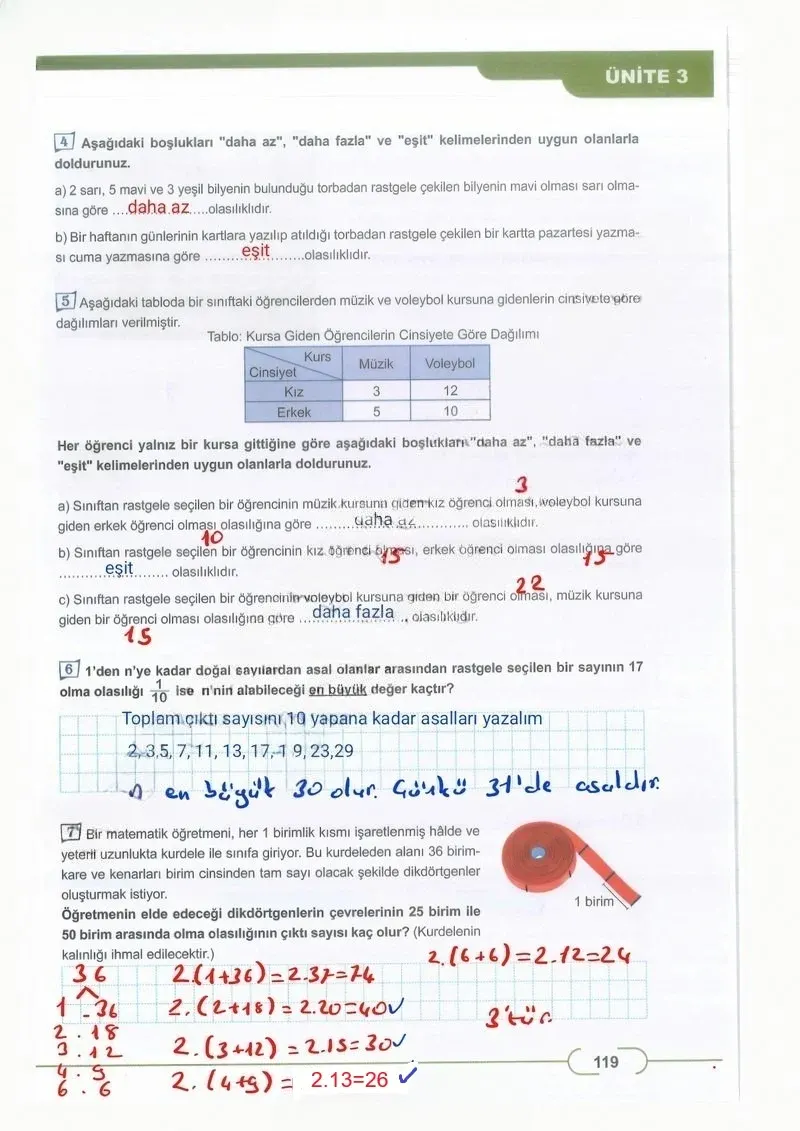 ÜNİTE 3
4 Aşağıdaki boşlukları "daha az", "daha fazla" ve "eşit" kelimelerinden uygun olanlarla
doldurunuz.
a) 2 sarı, 5 mavi ve 3 yeşil bilyenin bulunduğu torbadan rastgele çekilen bilyenin mavi olması sarı olma-
sına göre ....daha az.....olasılıklıdır.
b) Bir haftanın günlerinin kartlara yazılıp atıldığı torbadan rastgele çekilen bir kartta pazartesi yazma-
sı cuma yazmasına göre .........eşit.........olasılıklıdır.
5 Aşağıdaki tabloda bir sınıftaki öğrencilerden müzik ve voleybol kursuna gidenlerin cinsiyete göre
dağılımları verilmiştir.
Tablo: Kursa Giden Öğrencilerin Cinsiyete Göre Dağılımı
Kurs
Cinsiyet
Müzik
Voleybol
Kız 3 12
Erkek 5 10
Her öğrenci yalnız bir kursa gittiğine göre aşağıdaki boşlukları "daha az", "daha fazla" ve
"eşit" kelimelerinden uygun olanlarla doldurunuz.
3
a) Sınıftan rastgele seçilen bir öğrencinin müzik kursuna giden kız öğrenci olması, voleybol kursuna
giden erkek öğrenci olması olasılığına göre .........daha az............. olasılıklıdır.
10
b) Sınıftan rastgele seçilen bir öğrencinin kız öğrenci olması, erkek öğrenci olması olasılığına göre
15 15
...........eşit........ olasılıklıdır.
22
c) Sınıftan rastgele seçilen bir öğrencinin voleybol kursuna giden bir öğrenci olması, müzik kursuna
giden bir öğrenci olması olasılığına göre ...daha fazla.. olasılıklıdır.
15
6 1'den n'ye kadar doğal sayılardan asal olanlar arasından rastgele seçilen bir sayının 17
olma olasılığı 1/10 ise n'nin alabileceği en büyük değer kaçtır?
Toplam çıktı sayısını 10 yapana kadar asalları yazalım
2, 3,5, 7, 11, 13, 17, 1 9, 23,29
n en büyük 30 olur. Çünkü 31'de asaldır.
7 Bir matematik öğretmeni, her 1 birimlik kısmı işaretlenmiş hâlde ve
yeterli uzunlukta kurdele ile sınıfa giriyor. Bu kurdeleden alanı 36 birim-
kare ve kenarları birim cinsinden tam sayı olacak şekilde dikdörtgenler
oluşturmak istiyor.
1 birim
Öğretmenin elde edeceği dikdörtgenlerin çevrelerinin 25 birim ile
50 birim arasında olma olasılığının çıktı sayısı kaç olur? (Kurdelenin
kalınlığı ihmal edilecektir.)
2.(6+6)=2.12=24
36 2.(1+36)=2.37=74
1 . 36 2.(2+18)=2.20=40✓
3'tür.
2 . 18
3 . 12 2.(3+12)=2.15=30✓
119
4 . 9 2.(4+9)= 2.13=26 ✓
6 . 6